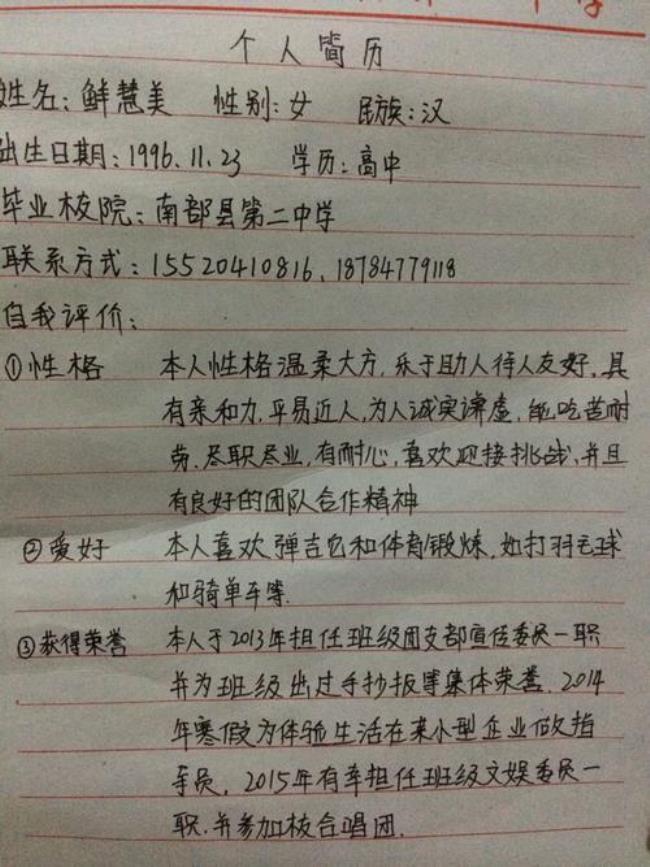 个人简历
姓名：鲜慧美 性别：女 民族：汉
出生日期：1996.11.23 学历：高中
毕业校院：南部县第二中学
联系方式：15520410816、18784779118
自我评价：
①性格 本人性格温柔大方，乐于助人待人友好，具
有亲和力，平易近人，为人诚实谦虚，能吃苦耐
劳，尽职尽业，有耐心，喜欢迎接挑战，并且
有良好的团队合作精神
②爱好 本人喜欢弹吉它和体育锻炼，如打羽毛球
和骑单车等.
③获得荣誉 本人于2013年担任班级团支部宣传委员一职
并为班级出过手抄报等集体荣誉，2014
年寒假为体验生活在某小型企业做指
导员，2015年有幸担任班级文娱委员一
职，并参加校合唱团.